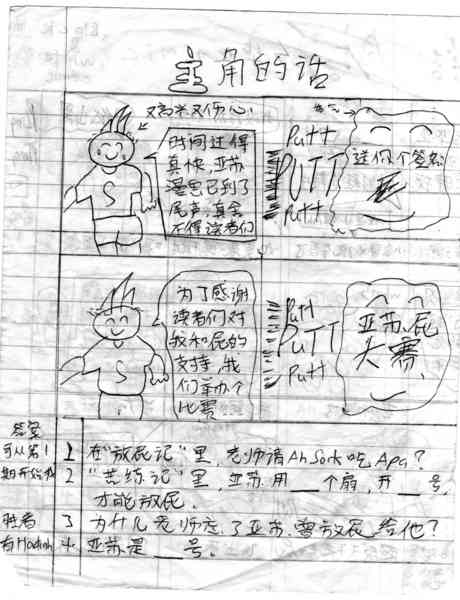 主角的话
又高兴又伤心
时间过得
真快,亚苏
漫画已到了
尾声,真舍
不得读者们
Putt
PUTT
Putt
送你个签名
为了感谢
读者们对
我和屁的
支持,我
们举办个
比赛
Putt
PUTT
Putt
亚苏、屁
大赛
答案
可从第1
期开始找
胜者
有Hadiah
1 在“放屁记”里,老师请Ah Sork吃Apa?
2 “苦练记”里,亚苏用__个扇,开__号,
才能放屁.
3 为什么老师走了亚苏 放屁给他?
4. 亚苏是__号.